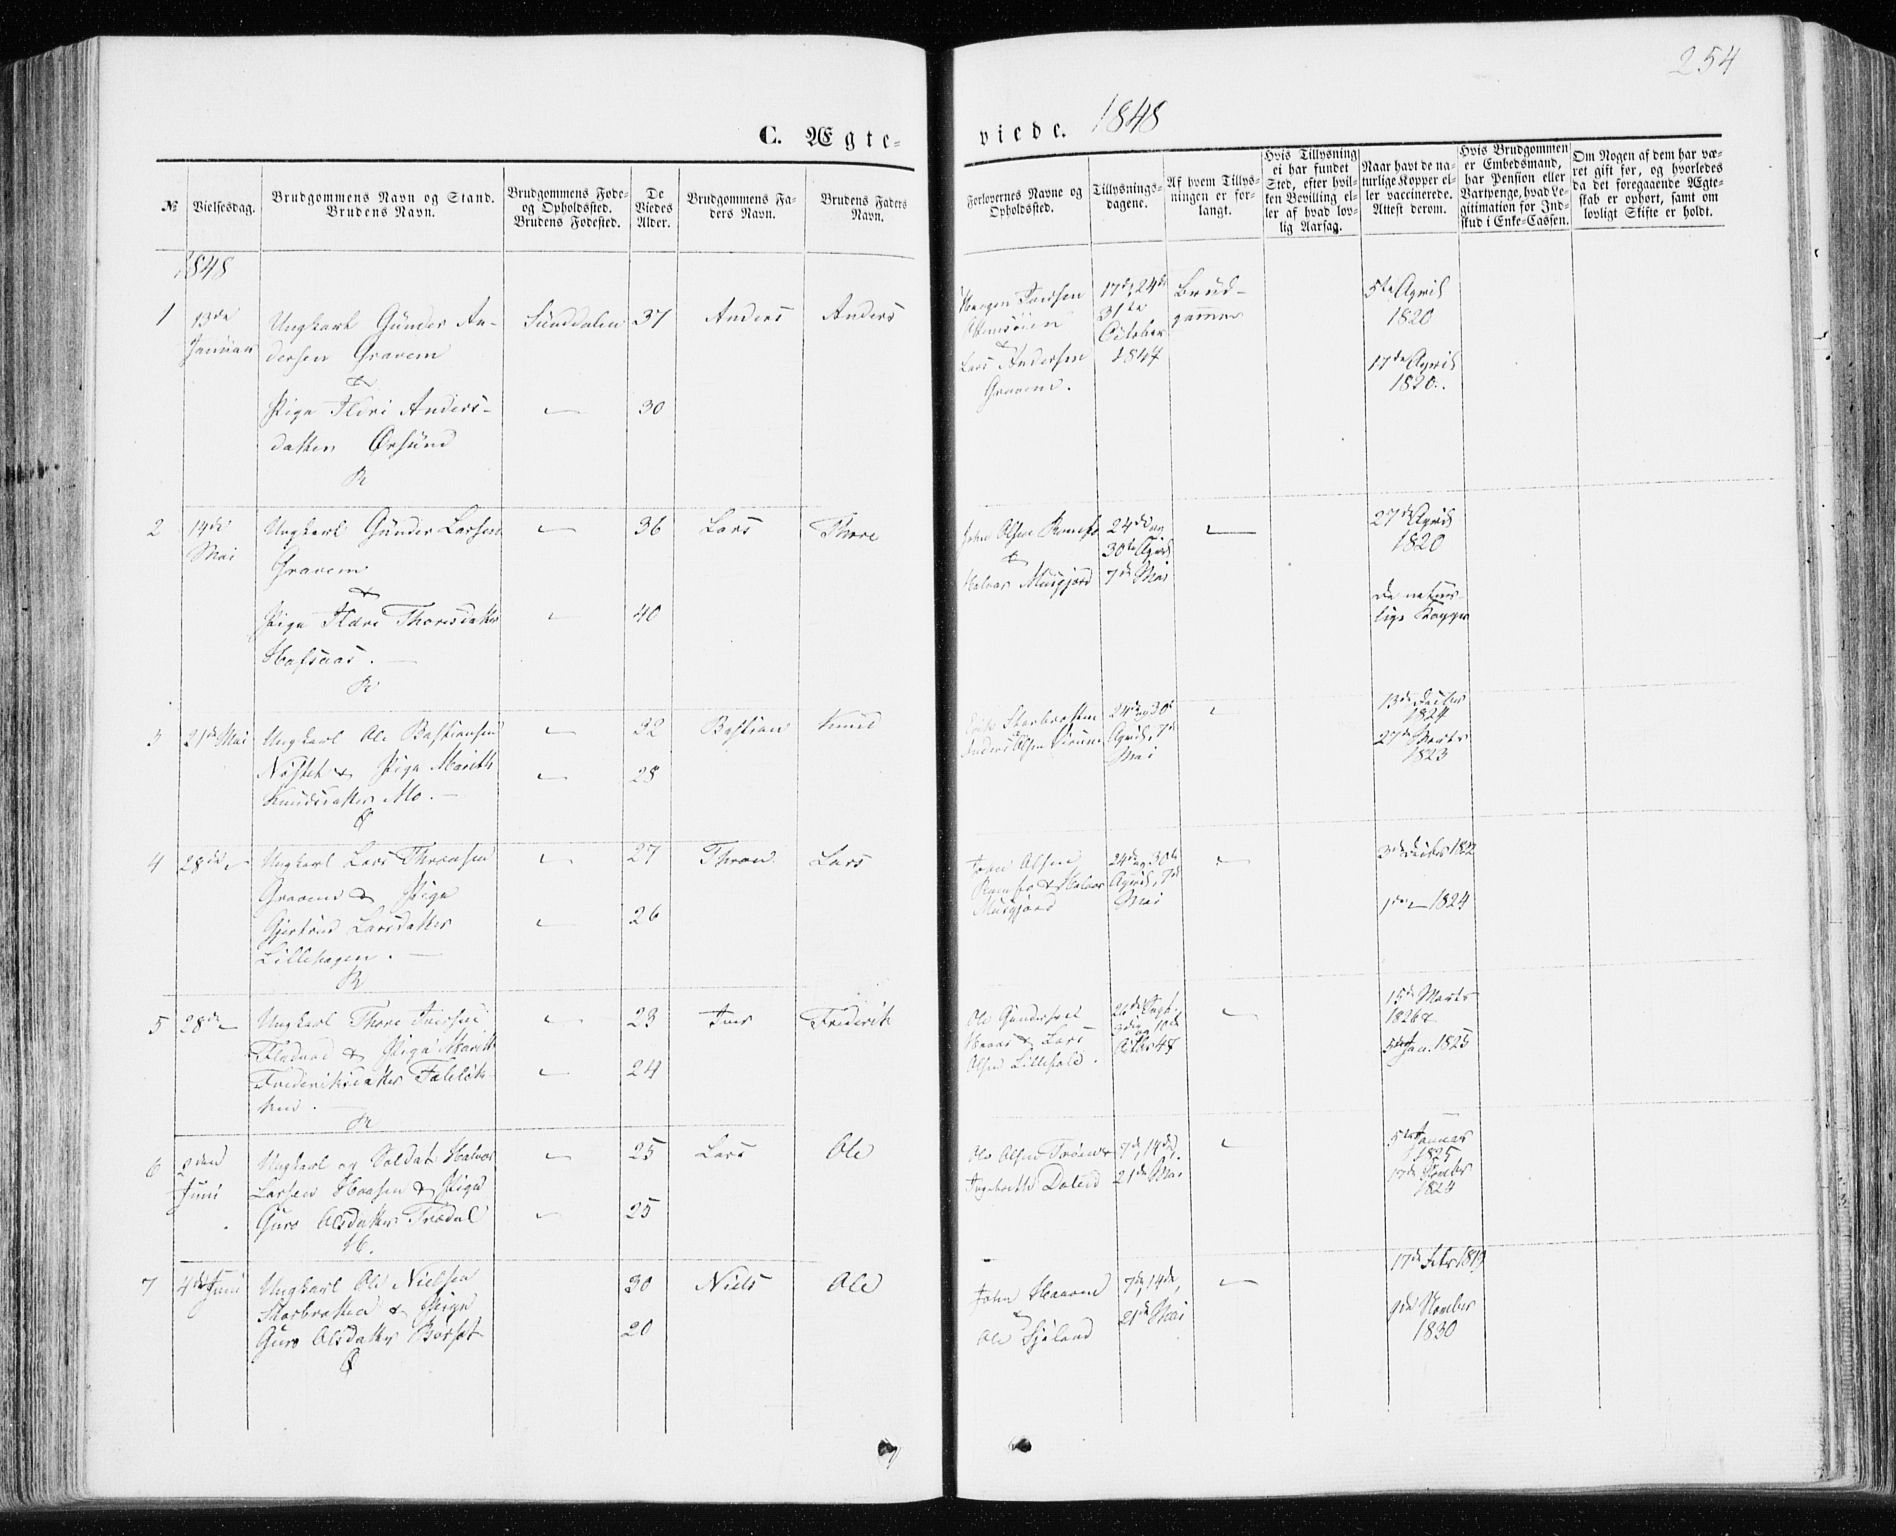 254
C. Ægte-
viede. 1848
№
Vielsesdag.
Brudgommens Navn og Stand.
Brudens Navn.
Brudgommens Føde-
og Opholdssted.
Brudens Fødested.
De
Viedes
Alder.
Brudgommens Fa-
ders Navn.
Brudens Faders
Navn.
Forlovernes Navne og
Opholdssted.
Tillysnings-
dagene.
Af hvem Tillys-
ningen er for-
langt.
Hvis Tillysning
ei har fundet
Sted, efter hvil-
ken Bevilling el-
ler af hvad lov-
lig Aarsag.
Naar havt de na-
turlige Kopper el-
ler vaccinerede.
Attest derom.
Hvis Brudgommen
er Embedsmand,
har Pension eller
Vartpenge, hvad Le-
gitimation for Ind-
skud i Enke-Cassen.
Om Nogen af dem har væ-
ret gift før, og hvorledes
da det foregaaende Ægte-
skab er ophørt, samt om
lovligt Skifte er holdt.
1848
1
13de
Januar
Ungkarl Gunder An-
dersen Gravem
&
Pige Ildri Anders-
datter Ørsund
Sunddalen
37
30
Anders
Anders
Iversen
&
Lars Andersen
Gravem.
17de, 24de
31te
October
1847
Brud-
gommen
5te April
1820
17de April
1820.
2
14de
Mai
Ungkarl Gunder Larsen
Gravem
&
Pige Ildri Thoresdatter
Hafsaas.
36
40
Lars
Thore
John Olsen Romfo
&
Halvor Musgjerd
24de og
30te April
7de Mai
27de April
1820
De natur-
lige Kopper
3
21de Mai
Ungkarl Ole Bastiansen
Nøstet & Pige Marith
Knudsdatter Mo.
32
28
Bastian
Knud
Erik Storbrøsten
Anders Olsen
24de og 30te
April, 7de
Mai
13de
1824
27de Marts
1823
4
28de
Ungkarl Lars Thronsen
Gravem & Pige
Gjertrud Larsdatter
Lillehagen.
27
26
Thron
Lars
John Olsen
Romfo & Halvor
Musgjerd
24de og 30te
April, 7de
Mai
1822
1de 1824
5
28de
Ungkarl Thore Iversen
Fladvad & Pige Marith
Frederiksdatter
23
24
Iver
Frederik
Ole Gundersen
& Lars
Olsen Lillehole.
47
15de Marts
1826 &
Jan. 1825
6
2den
Juni
Ungkarl og Soldat Halvor
Larsen Hoaasen & Pige
Guro Olsdatter Trædal
25
25
Lars
Ole
Ole Olsen
Dalen
7de, 14de,
21de Mai
5te Januar
1825
17de
1824
7
4de Juni
Ungkarl Ole Nielsen
Storbrøsten & Pige
Guro Olsdatter Børset
30
20
Niels
Ole
John Hoaaven
&
Ole Sjøland
7de, 14de,
21de Mai
17de Febr 1819
9de
1830